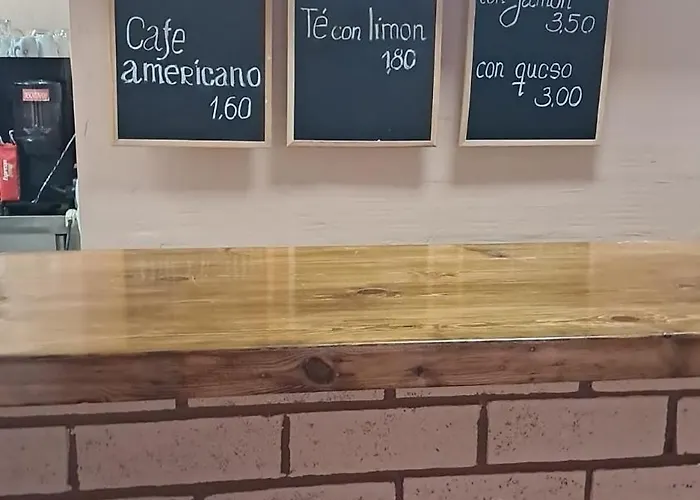 Cafe
americano
1,60
Té con limon
1,80
con jamon
3,50
con queso
3,00